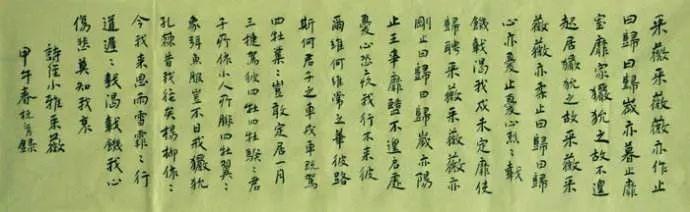 采薇采薇薇亦作止
曰歸曰歸歲亦暮止靡
室靡家玁狁之故不遑
起居玁狁之故采薇采
薇薇亦柔止曰歸曰歸
心亦憂止憂心烈〻載
饑載渴我戍未定靡使
歸聘采薇采薇薇亦
剛止曰歸曰歸歲亦陽
止王事靡盬不遑启處
憂心孔疚我行不来彼
爾維何維常之華彼路
斯何君子之車戎車既駕
四牡業〻豈敢定居一月
三捷駕彼四牡四牡騤〻君
子所依小人所腓四牡翼〻
象弭魚服豈不日戒玁狁
孔棘昔我往矣楊柳依〻
今我来思雨雪霏〻行
道遲〻載渴載饑我心
傷悲莫知我哀
詩經小雅采薇
甲午春錄